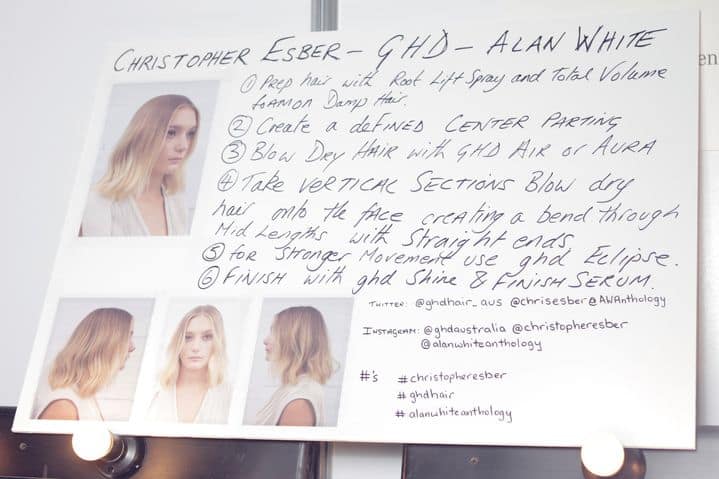 CHRISTOPHER ESBER - GHD - ALAN WHITE
① Prep hair with Root Lift Spray and Total Volume
foam on Damp Hair.
② Create a defined CENTER PARTING
③ Blow Dry HAIR with GHD AIR or AURA
④ Take VERTICAL SECTIONS Blow dry
hair onto the face creating a bend through
Mid Lengths with Straight ends
⑤ for Stronger Movement use ghd Eclipse.
⑥ FINISH with ghd Shine & FINISH SERUM.
TWITTER: @ghdhair_aus @chrisesber @AWAnthology
INSTAGRAM: @ghdaustralia @christopheresber
@alanwhiteanthology
#'s #christopheresber
#ghdhair
#alanwhiteanthology
en